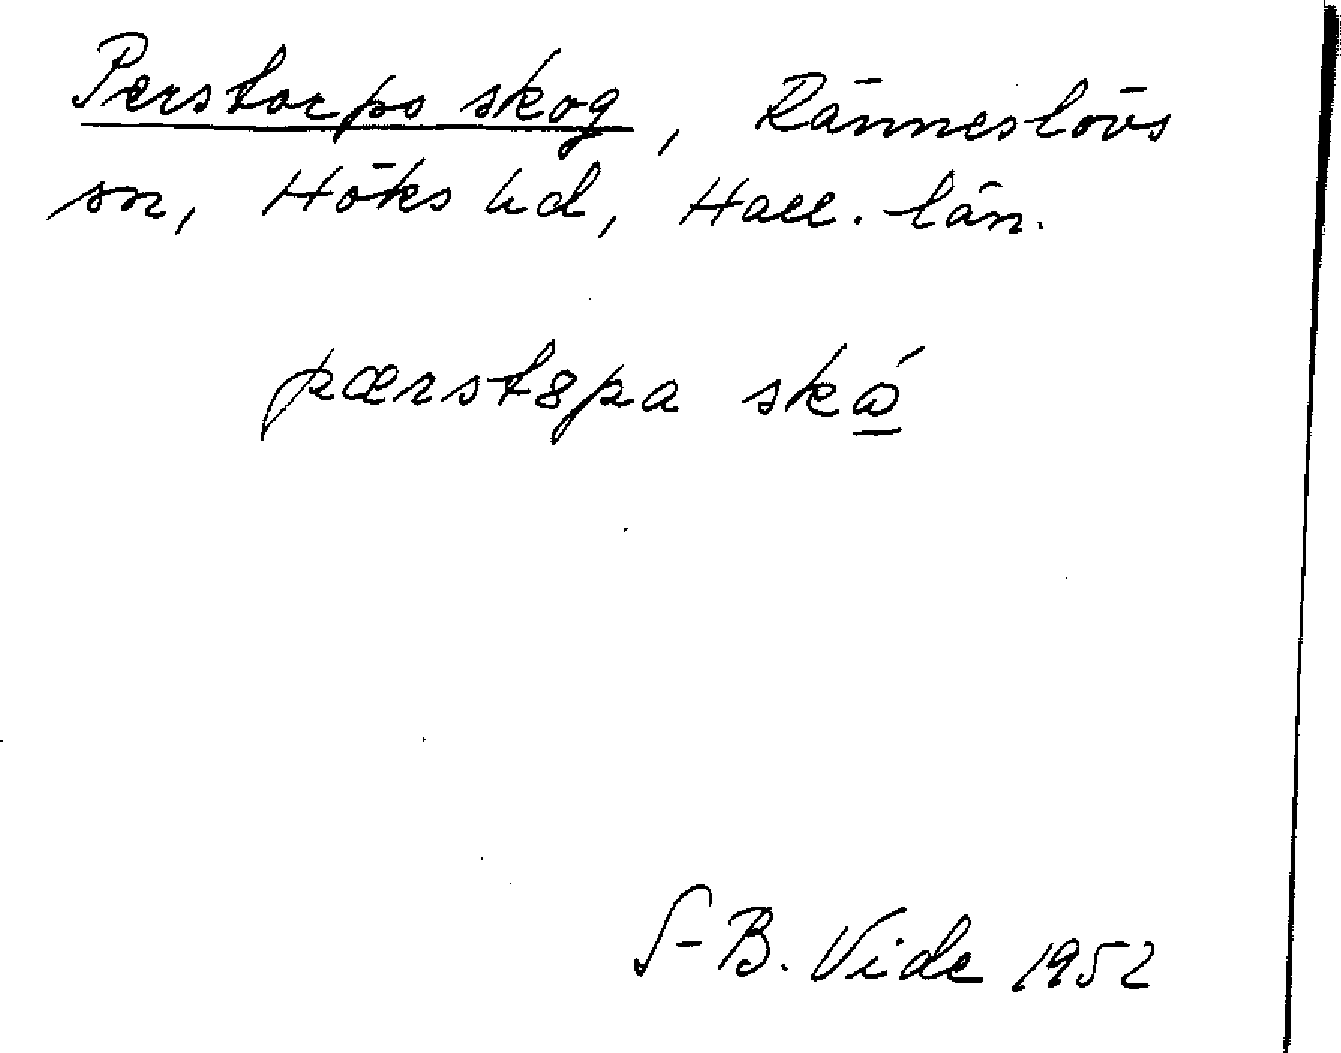 Perstorps skog, Ränneslövs
sn, Höks hd, Hall. län.
pærst8pa skó
S-B. Vide 1952